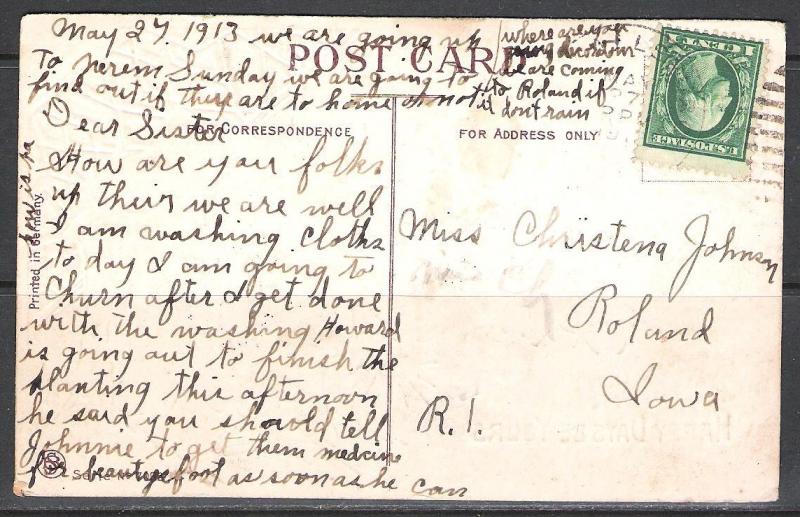 May 27, 1913 we are going up
To Jerem Sunday we are going to
find out if they are to home or not
where are you
going decoration
we are coming
to Roland if
it dont rain
POST CARD
FOR CORRESPONDENCE
FOR ADDRESS ONLY
Dear Sister
How are your folks
up their we are well
I am washing cloths
to day I am going to
Churn after I get done
with the washing Howard
is going out to finish the
planting this afternoon
he said you should tell
Johnnie to get them medcine
for foot as soon as he can
how is pa
Printed in Germany.
Serie
Miss Christena Johnson
Roland
Iowa
R. 1.
1 CENT 1
U.S. POSTAGE
HAPPY DAYS BE YOURS